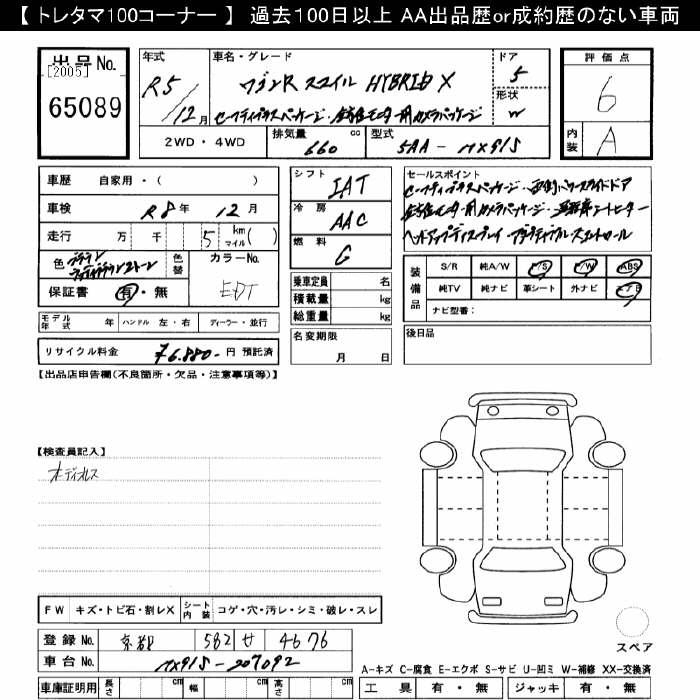 【 トレタマ100コーナー 】 過去100日以上 AA出品歴or成約歴のない車両
出品No.
[2005]
65089
年式
R5/12月
車名・グレード
ワゴンR スマイル HYBRID X
セーフティプラスパッケージ・全方位モニター用カメラパッケージ
ドア
5
形状
W
2WD・4WD
排気量 660 cc
型式 5AA-MX91S
評価点
6
内装 A
車歴 自家用・( )
車検 R8年 12月
走行 万 千 5 km マイル( )
色 2トーン
色替
カラーNo.
EDT
保証書 有・無
モデル年式 年 ハンドル 左・右 ディーラー・並行
リサイクル料金 76,880- 円 預託済
シフト IAT
冷房 AAC
燃料 G
乗車定員 名
積載量 kg
総重量 kg
名変期限
月 日
セールスポイント
セーフティプラスパッケージ・両側パワースライドドア
全方位モニター用カメラパッケージ・運転席シートヒーター
ヘッドアップディスプレイ・アダプティブクルーズコントロール
装備品
S/R 純A/W P/S P/W ABS
純TV 純ナビ 革シート 外ナビ エアB
ナビ型番:
後日品
【出品店申告欄(不良箇所・欠品・注意事項等)】
【検査員記入】
オーディオレス
FW キズ・トビ石・割レX シート内装 コゲ・穴・汚レ・シミ・破レ・スレ
登録No. 京都 582 せ 4676
車台No. MX91S-207092
車庫証明用 長さ cm 幅 cm 高さ cm
スペア
A-キズ C-腐食 E-エクボ S-サビ U-凹ミ W-補修 XX-交換済
工具 有・無 ジャッキ 有・無